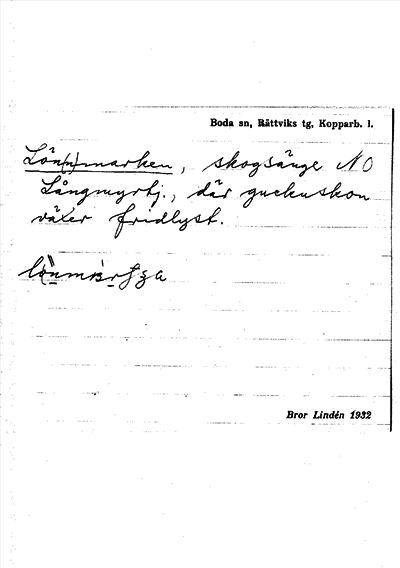 Boda sn, Rättviks tg, Kopparb. l.
Lön(n)marken, skogsänge NO
Långmyrtj., där guckuskon
växer fridlyst.
Bror Lindén 1932